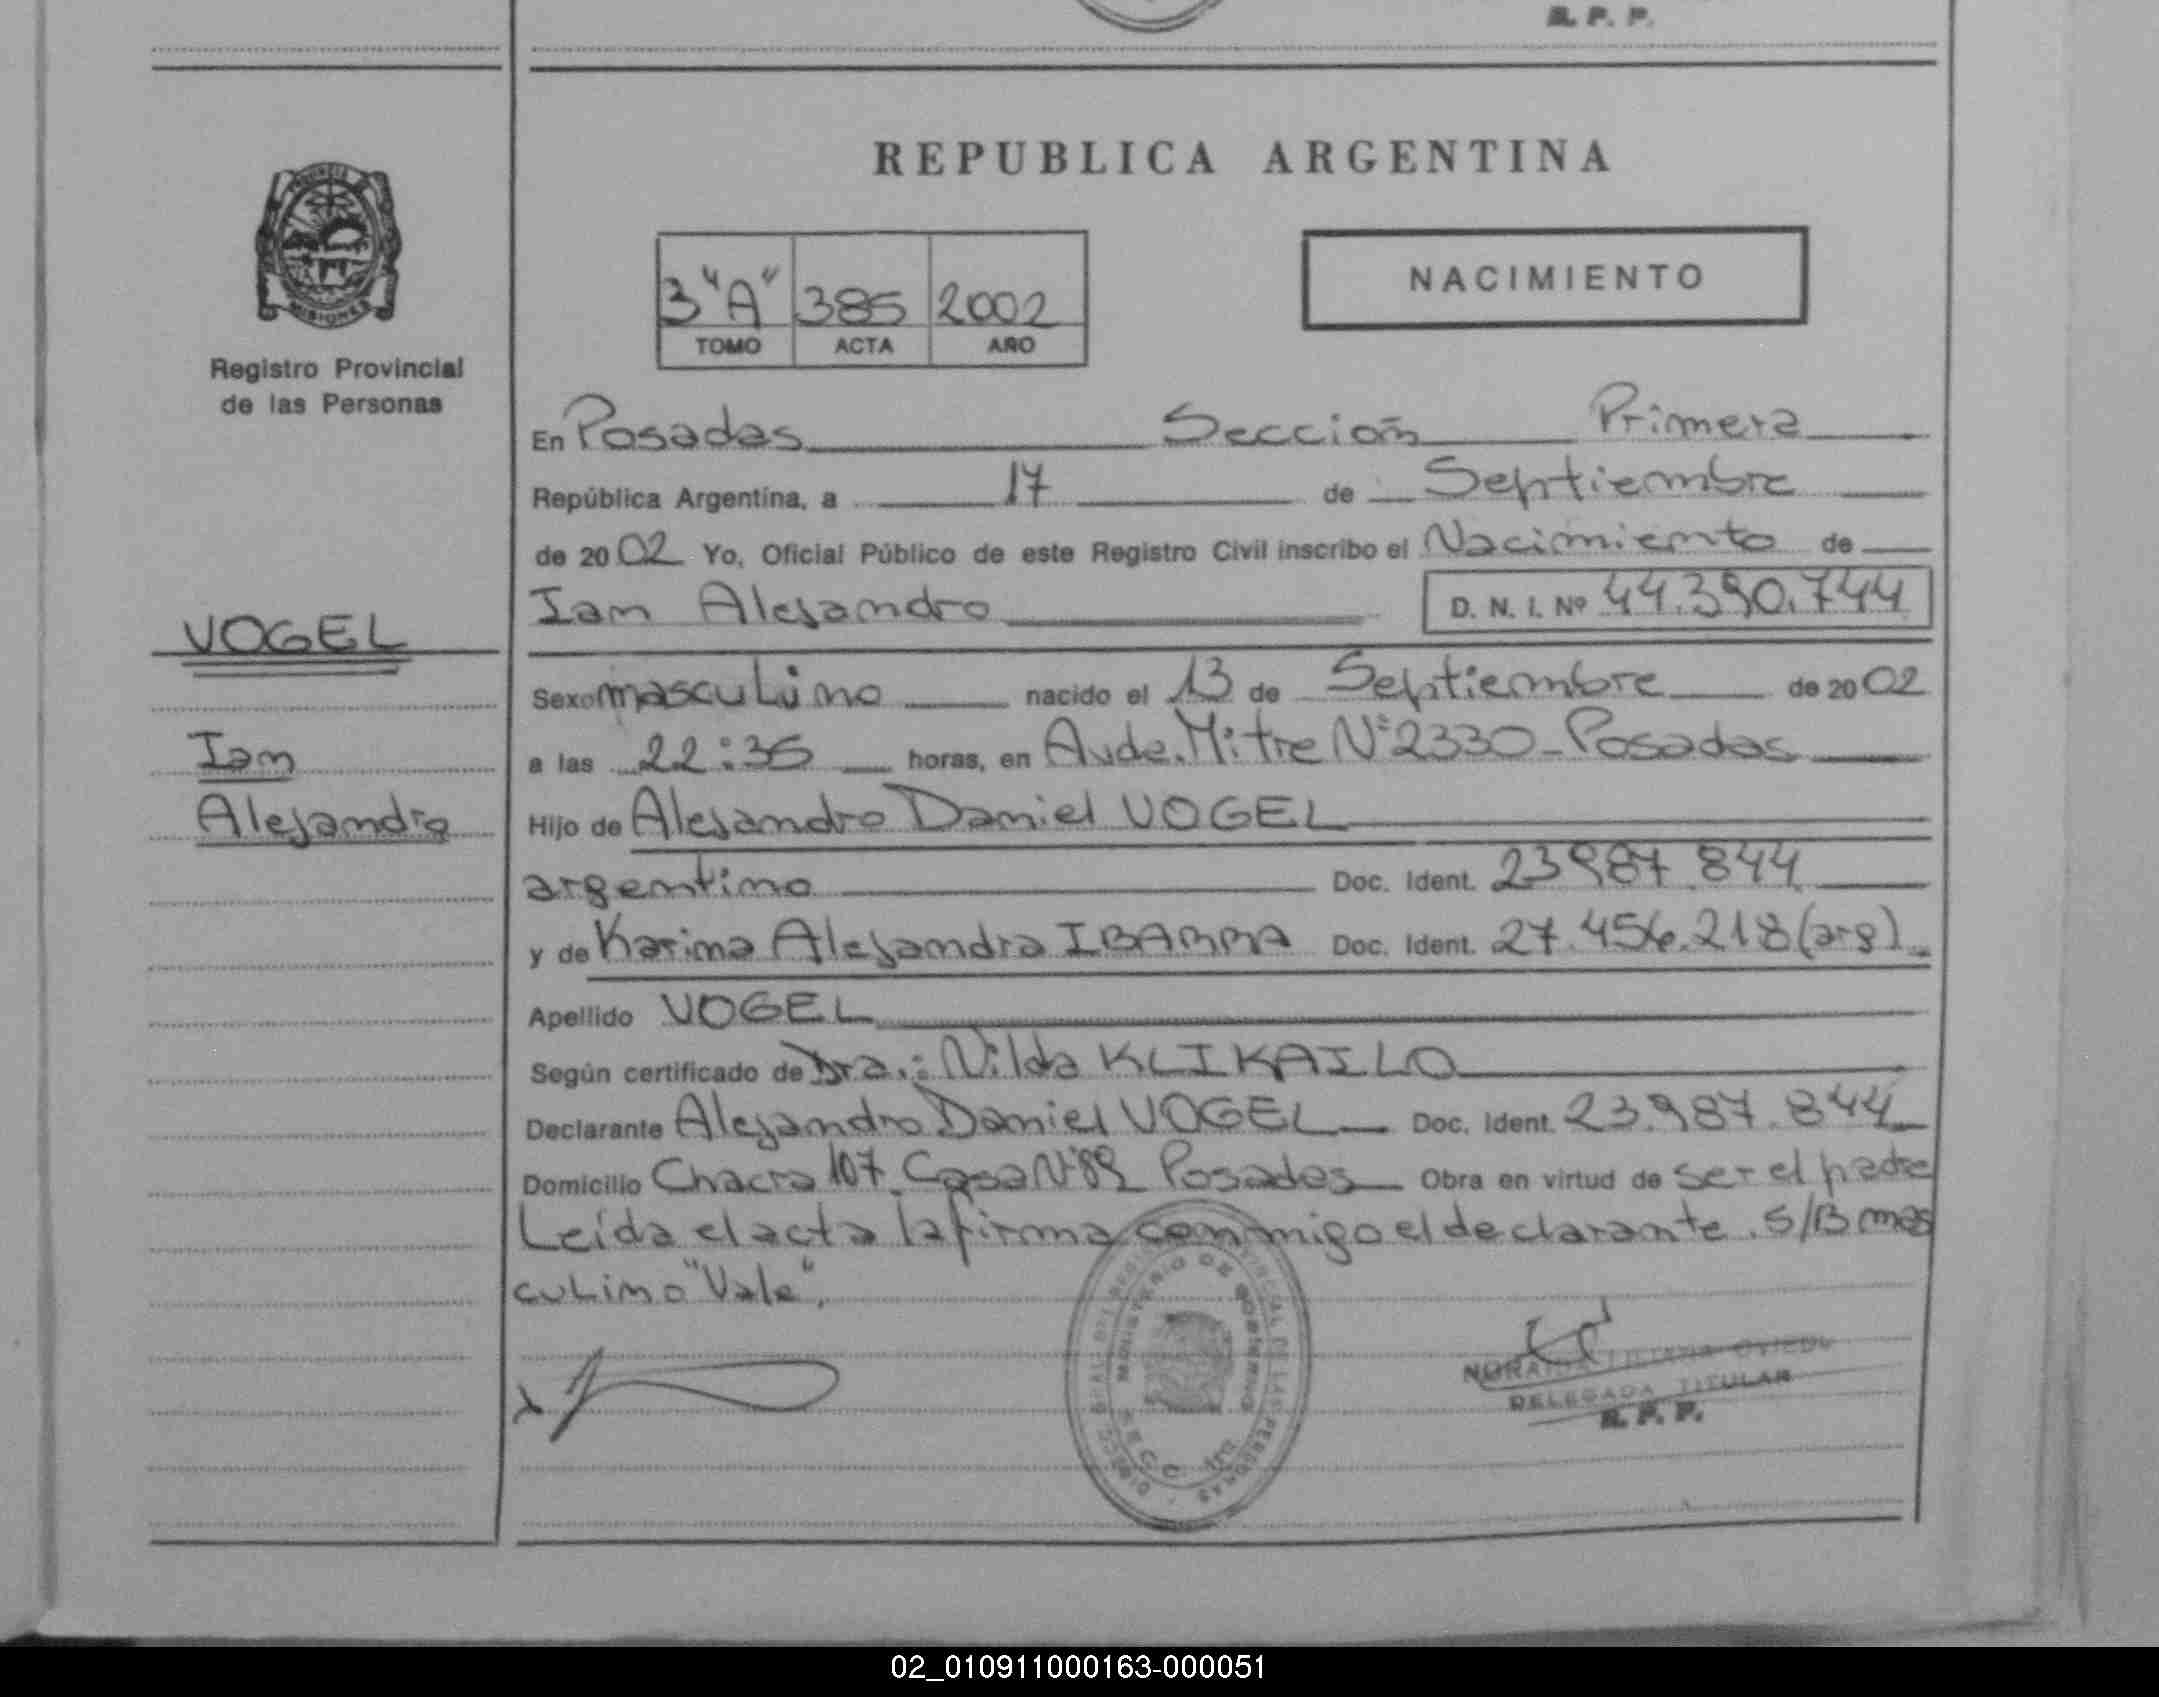 R. P. P.
REPUBLICA ARGENTINA
PROVINCIA DE
MISIONES
Registro Provincial
de las Personas
3 "A" 385 2002
TOMO ACTA AÑO
NACIMIENTO
En Posadas Sección Primera
República Argentina, a 17 de Septiembre
de 2002 Yo, Oficial Público de este Registro Civil inscribo el Nacimiento de
Ian Alejandro D. N. I. Nº 44.390.744
VOGEL
Ian
Alejandro
Sexo masculino nacido el 13 de Septiembre de 2002
a las 22:35 horas, en Avde. Mitre Nº 2330 - Posadas
Hijo de Alejandro Daniel VOGEL
argentino Doc. Ident. 23 987 844
y de Karina Alejandra IBARRA Doc. Ident. 27.456.218 (arg)
Apellido VOGEL
Según certificado de Dra.: Nilda KLIKAILO
Declarante Alejandro Daniel VOGEL Doc. Ident. 23.987.844
Domicilio Chacra 107 Casa Nº 89 Posadas Obra en virtud de ser el padre
Leída el acta la firma conmigo el declarante. S/B mas
culino "Vale".
MINISTERIO DE GOBIERNO
LILIANA OVIEDO
DELEGADA TITULAR
R. P. P.
02_010911000163-000051